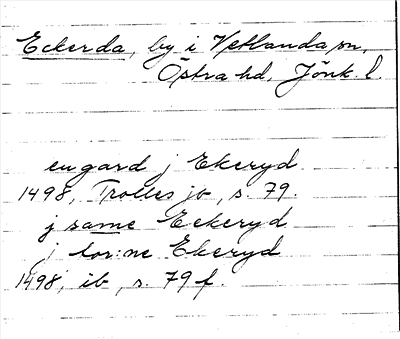 Eckerda, by i Vetlanda sn,
Östra hd, Jönk. l.
en gard j Ekeryd
1498, Trolles jb, s. 79.
j same Eekeryd
j tor:ne Ekeryd
1498, ib, s. 79 f.